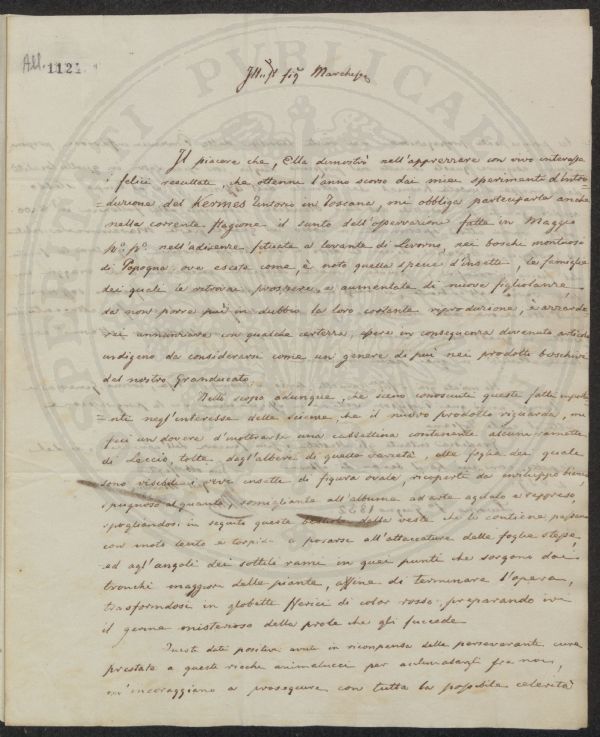 All. 1121.
Ill.mo Sig. Marchese
Il piacere che, Ella dimostrò nell'apprezzare con vivo interesse
i felici resultati, che ottenni l'anno scorso dai miei sperimenti d'intro=
=duzione del Kermes tintorio in Toscana, mi obbliga parteciparle anche
nella corrente stagione il sunto dell'osservazioni fatte in Maggio
p.o p.o nell'adicenze situate a levante di Livorno, nei boschi montuosi
di Popogna, ove esiste come è noto quella specie d'insetti, le famiglie
dei quali le ritrovai prospere, e aumentate di nuove figliolanze
da non porre più in dubbio la loro costante riproduzione, e azzarde
rei annunziare con qualche certezza, essere in conseguenza divenuto articolo
indigeno da considerarsi come un genere di più nei prodotti boschivi
del nostro Granducato.
Nello scopo adunque, che sieno conosciuti questi fatti import
=anti negl'interessi delle scienze, che il nuovo prodotto riguarda, mi
feci un dovere d'inoltrarle una cassettina contenente alcuni rametti
di Leccio, tolti dagl'alberi di questa varietà, alle foglie dei quali
sono vischiati i vivi insetti di figura ovale, ricoperti da inviluppo bianco
spugnoso alquanto, somigliante all'albume ad arte agitato e rappreso,
spogliandosi in seguito queste bestiole dalla veste che le contiene passano
con moto lento e torpido a posarsi all'attaccature delle foglie stesse,
ed agl'angoli dei sottili rami in quei punti che sorgono dai
tronchi maggiori delle piante, affine di terminare l'opera,
trasformandosi in globetti sferici di color rosso, preparando ivi
il germe misterioso della prole che gli succede.
Questi dati positivi avuti in ricompensa delle perseveranti cure
prestate a queste ricche animalucci per acclimatargli fra noi,
m'incoraggiano a proseguire con tutta la possibile celerità